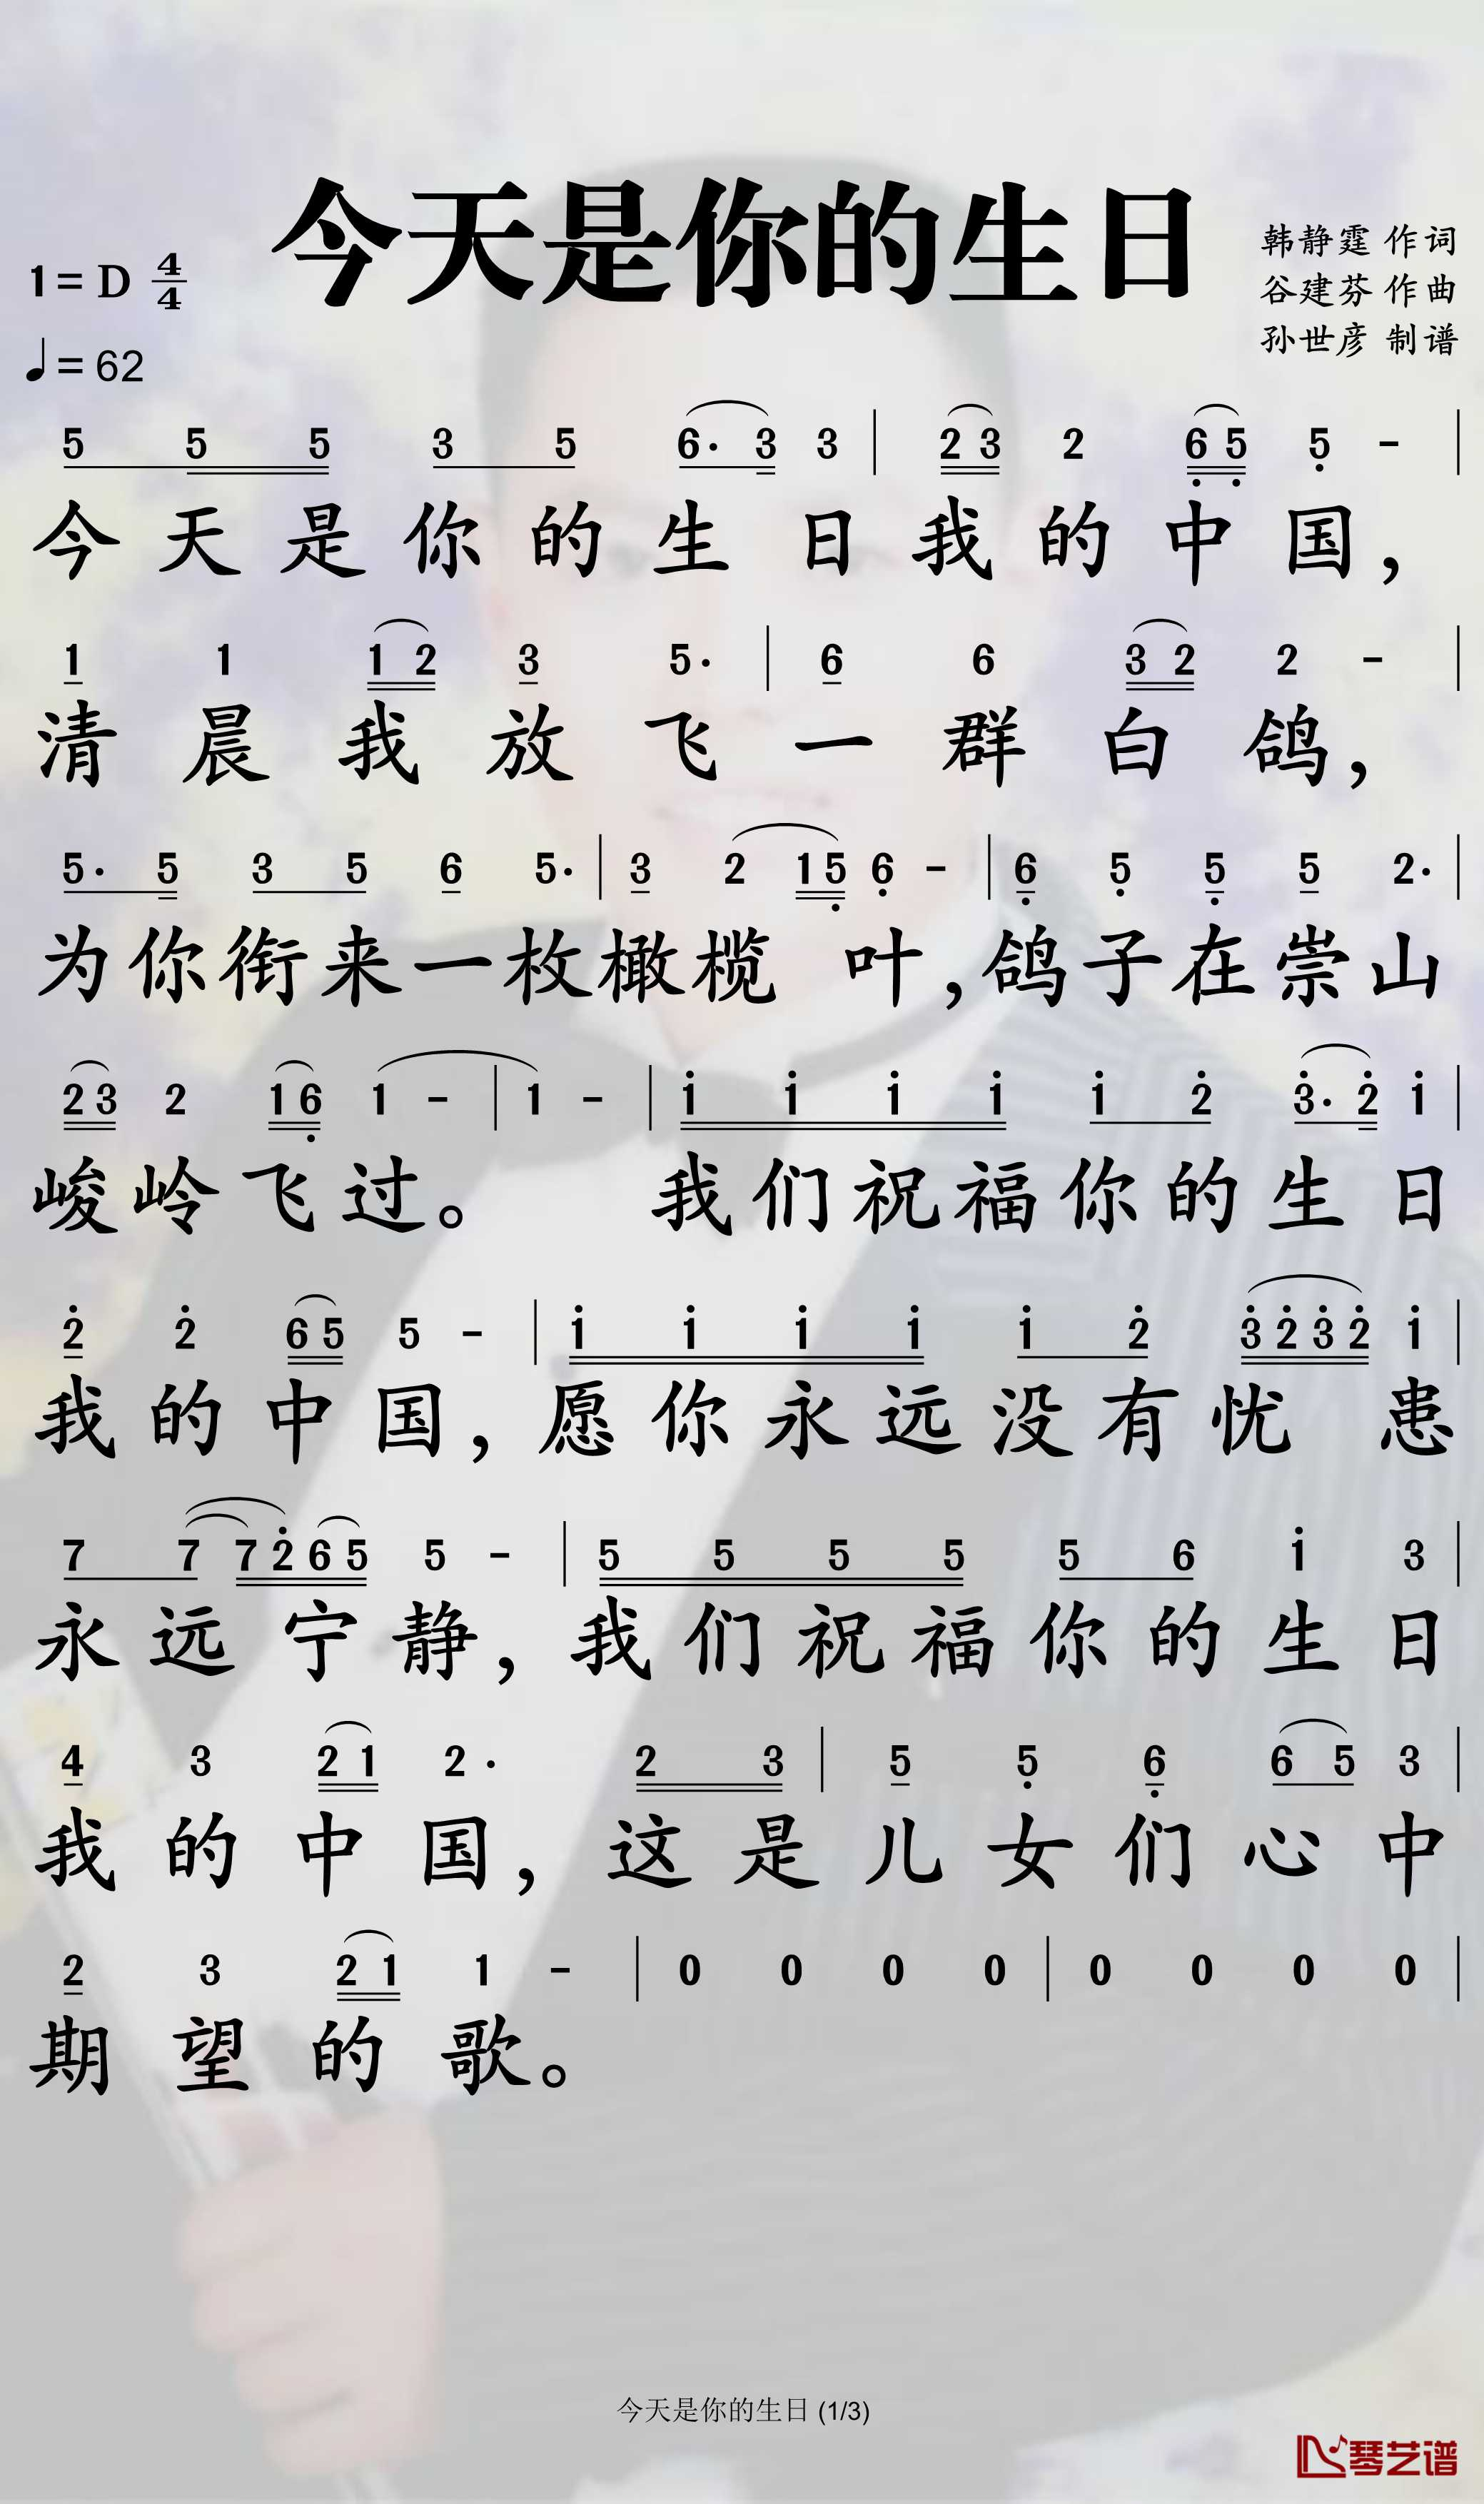 今天是你的生日
韩静霆 作词
1=D 4/4
谷建芬 作曲
♩=62
孙世彦 制谱
5 5 5 3 5 6· 3 3 | 2 3 2 6̣ 5̣ 5̣ - |
今天是你的生日我的中国，
1 1 1 2 3 5· | 6 6 3 2 2 - |
清晨我放飞一群白鸽，
5· 5 3 5 6 5· | 3 2 1 5̣ 6̣ - | 6̣ 5̣ 5̣ 5 2· |
为你衔来一枚橄榄 叶，鸽子在崇山
2 3 2 1 6̣ 1 - | 1 - | 1̇ 1̇ 1̇ 1̇ 1̇ 2̇ 3̇· 2̇ 1̇ |
峻岭飞过。 我们祝福你的生日
2̇ 2̇ 6 5 5 - | 1̇ 1̇ 1̇ 1̇ 1̇ 2̇ 3̇ 2̇ 3̇ 2̇ 1̇ |
我的中国，愿你永远没有忧 患
7 7 7 2̇ 6 5 5 - | 5 5 5 5 5 6 1̇ 3 |
永远宁静，我们祝福你的生日
4 3 2 1 2· 2 3 | 5 5̣ 6̣ 6 5 3 |
我的中国，这是儿女们心中
2 3 2 1 1 - | 0 0 0 0 | 0 0 0 0 |
期望的歌。
今天是你的生日 (1/3)
琴艺谱